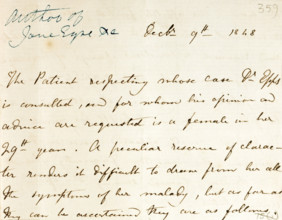 Author of
Jane Eyre &c
357
Decbr 9th 1848
The Patient respecting whose case Dr Epps
is consulted, and for whom his opinion and
advice are requested is a female in her
29th year. A peculiar reserve of charac-
ter renders it difficult to draw from her all
the symptoms of her malady, but as far as
they can be ascertained they are as follows.